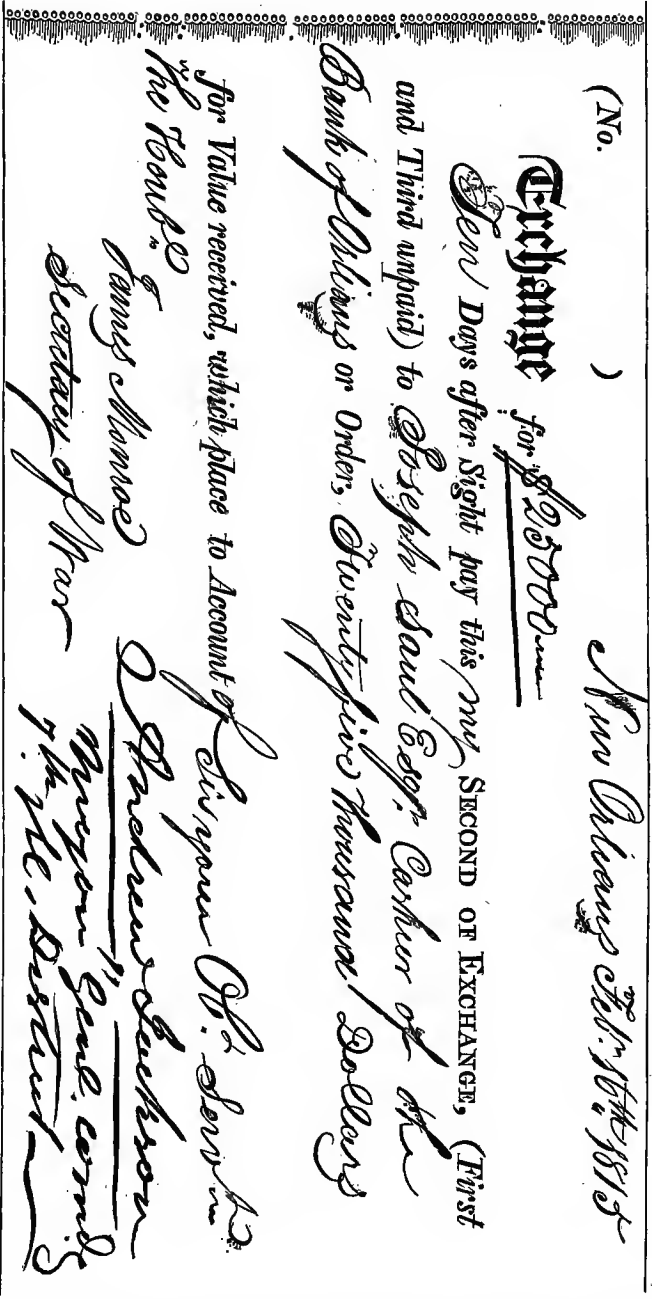 New Orleans Feby. 16th 1815
(No. )
Exchange for $25000
Ten Days after Sight pay this my SECOND OF EXCHANGE, (First
and Third unpaid) to Joseph Saul Esqr. Cashier of the
Bank of Orleans or Order, Twenty five thousand Dollars
for Value received, which place to Account of Sir your Obt. Servt.
The Honble.
James Monroe
Secretary of War
Andrew Jackson
Major Genl. comdg
7th M. District